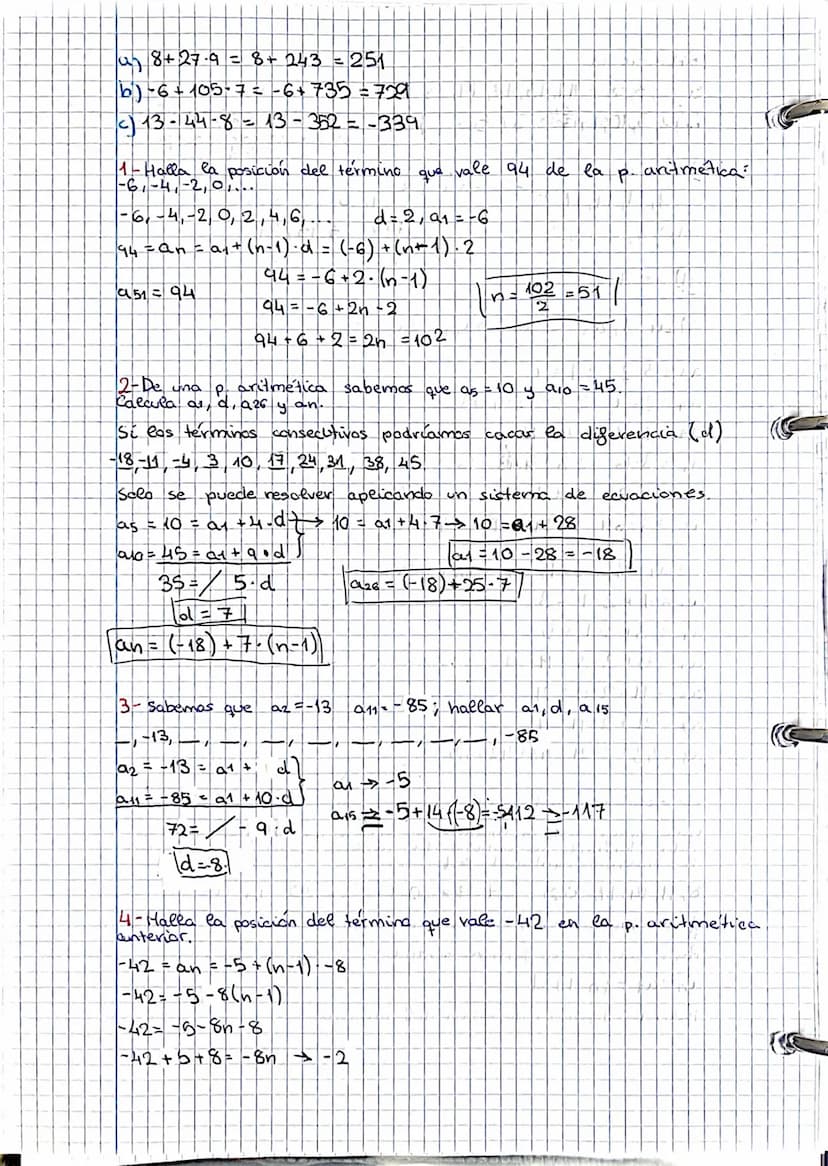 a) 8+27·9 = 8+243 = 251
b) -6+105·7 = -6+735 = 729
c) 13-44·8 = 13-352 = -339
1-Halla la posición del término que vale 94 de la p. aritmética:
-6,-4,-2,0,...
-6,-4,-2,0,2,4,6,... d=2, a1=-6
94=an=a1+(n-1)·d=(-6)+(n-1)·2
94=-6+2·(n-1)
a51=94
n=102/2=51
94=-6+2n-2
94+6+2=2n =102
2-De una p. aritmética sabemos que a5=10 y a10=45.
Calcula a1, d, a26 y an.
Si los términos consecutivos podríamos cacar la diferencia (d)
-18,-11,-4,3,10,17,24,31,38,45
Solo se puede resolver aplicando un sistema de ecuaciones.
a5=10=a1+4·d}→10=a1+4·7→10=a1+28
a10=45=a1+9·d a1=10-28=-18
35=/ 5·d a26=(-18)+25·7
d=7
an=(-18)+7·(n-1)
3-Sabemos que a2=-13 a11=-85; hallar a1, d, a15
_,-13,_,_,_,_,_,_,_,_,-85
a2=-13=a1+ d} a1→-5
a11=-85=a1+10·d
a15⇒-5+14·(-8)=-5112→-117
72=/-9·d
d=-8
4-Halla la posición del término que vale -42 en la p. aritmética
anterior.
-42=an=-5+(n-1)·-8
-42=-5-8(n-1)
-42=-5-8n-8
-42+5+8=-8n → -2